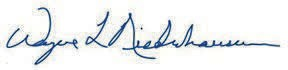 Wayne L Niederhauser